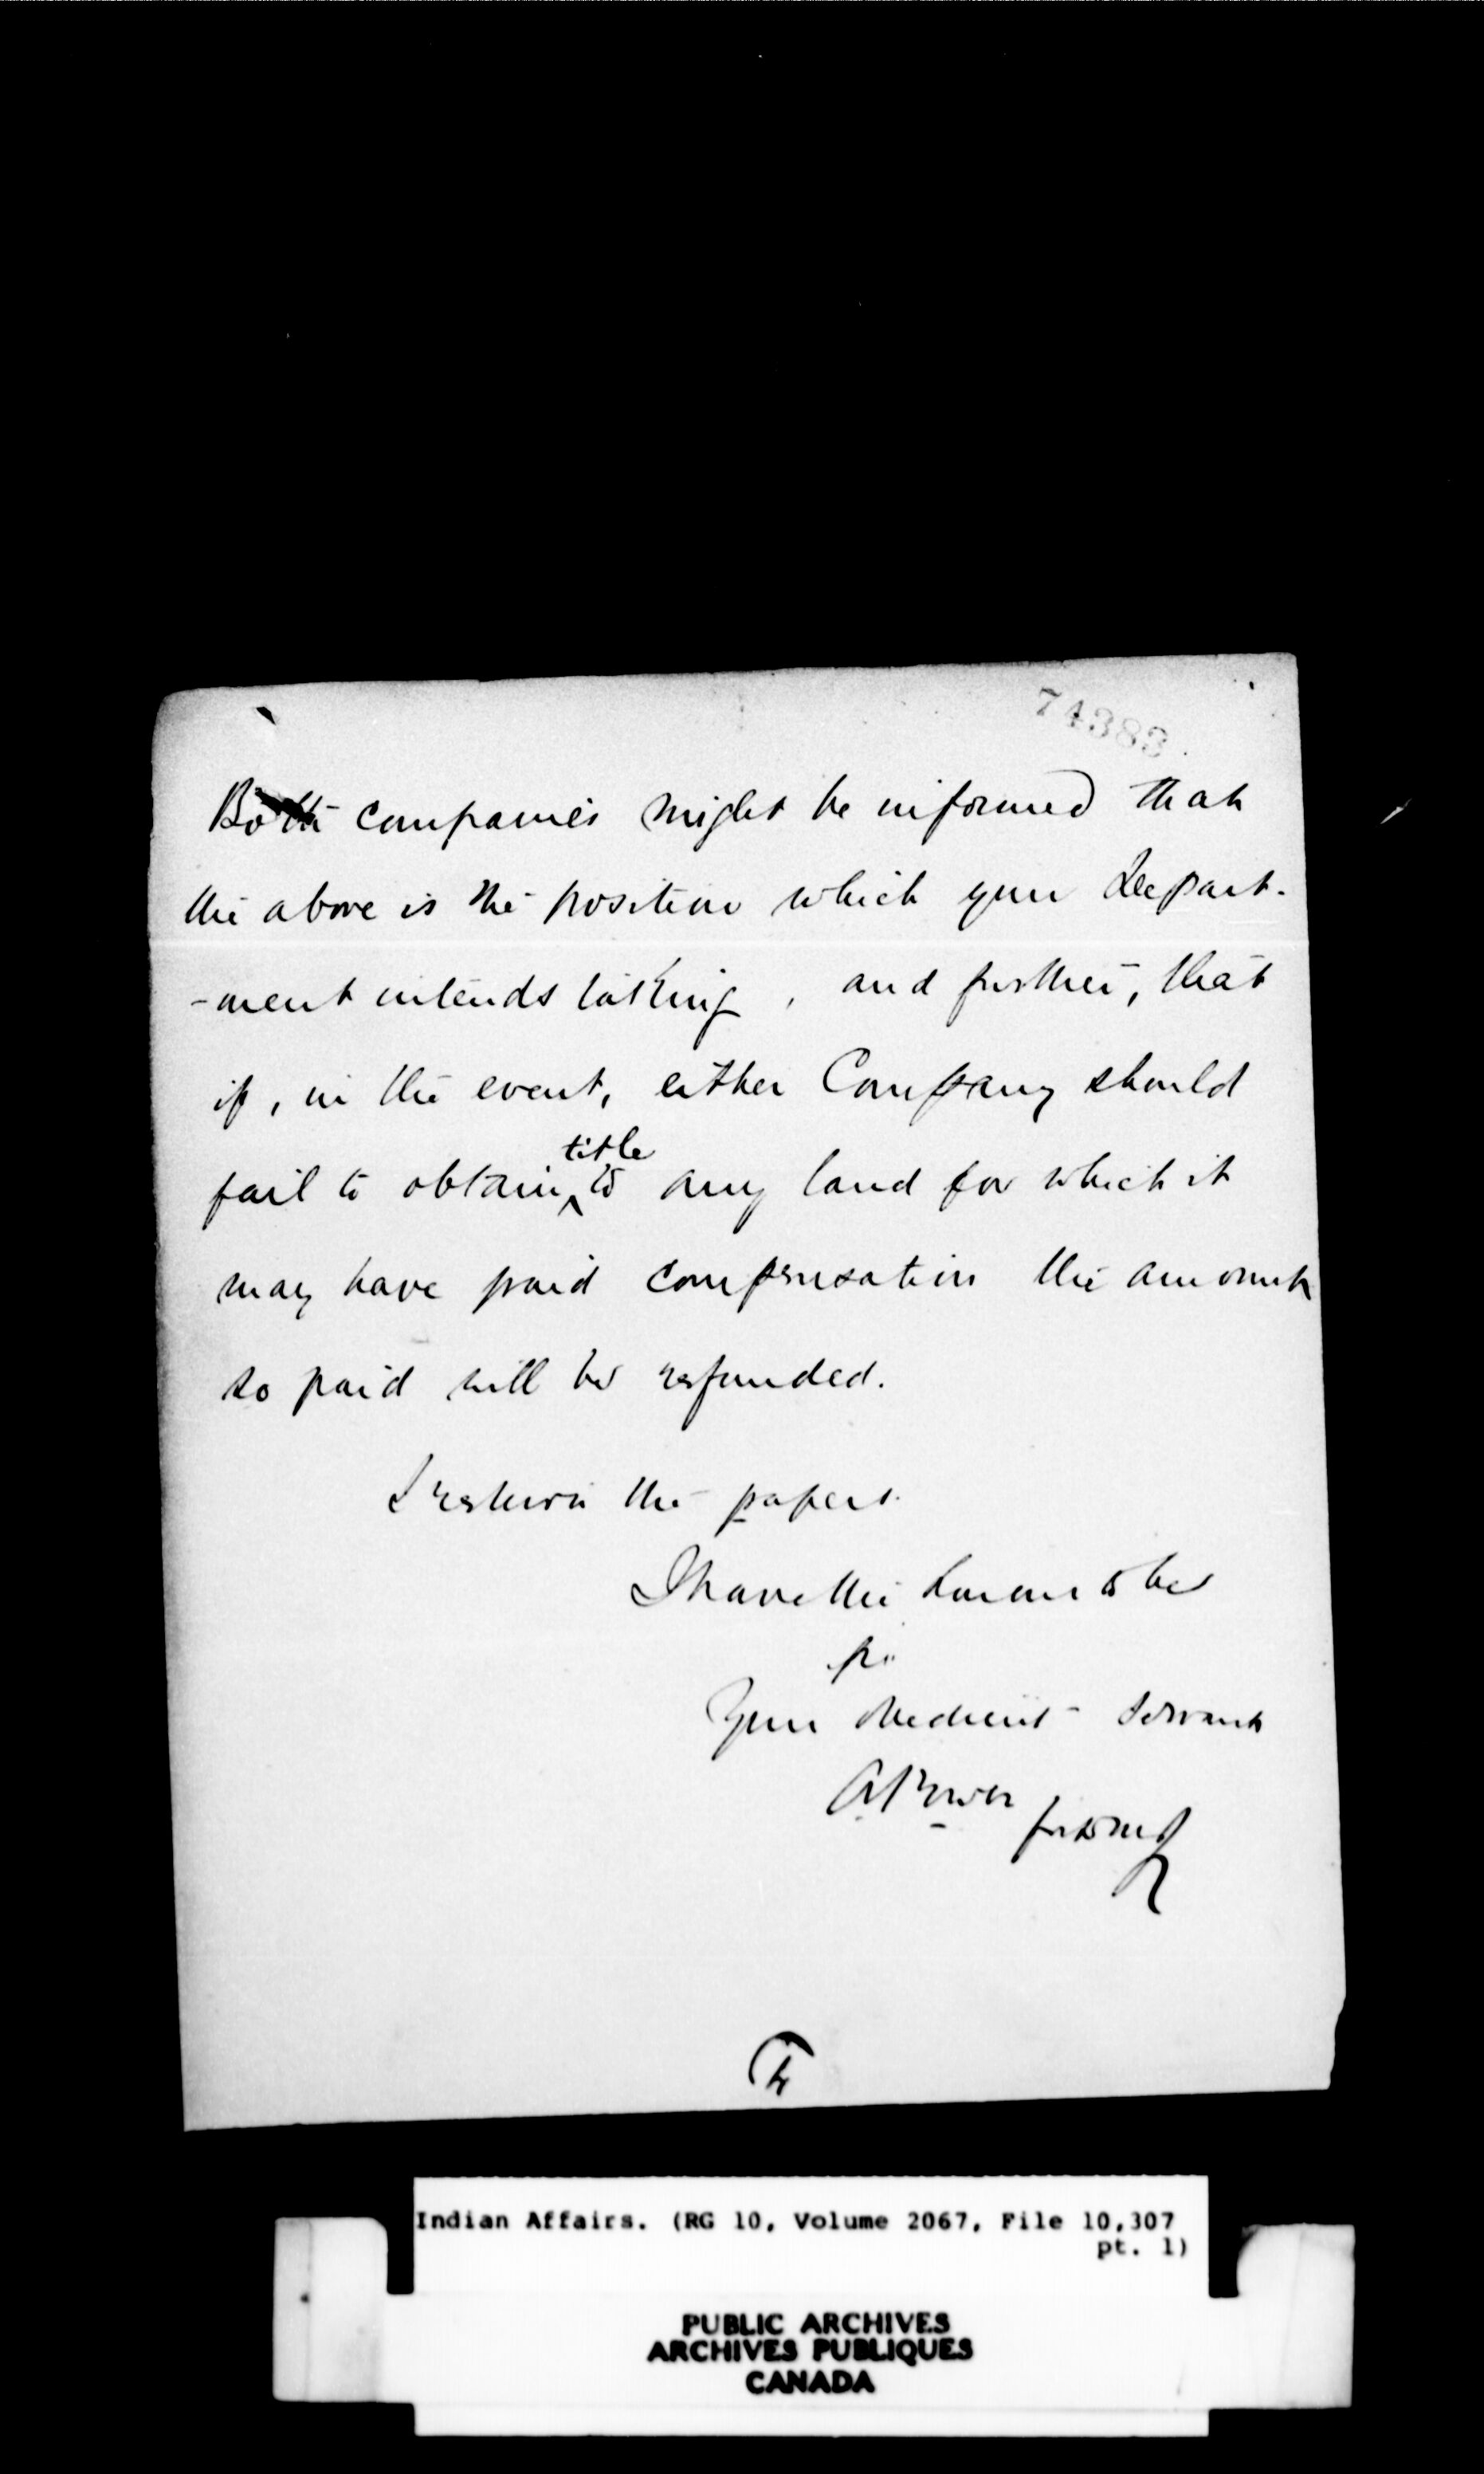 74383
Both companies might be informed that
the above is the position which your Depart-
-ment intends taking, and further, that
if, in the event, either Company should
title
fail to obtain ^ to any land for which it
may have paid compensation the amount
so paid will be refunded.
I return the papers.
I have the honour to be
Sir
Your obedient Servant
A Power
4
Indian Affairs. (RG 10, Volume 2067, File 10,307
pt. 1)
PUBLIC ARCHIVES
ARCHIVES PUBLIQUES
CANADA